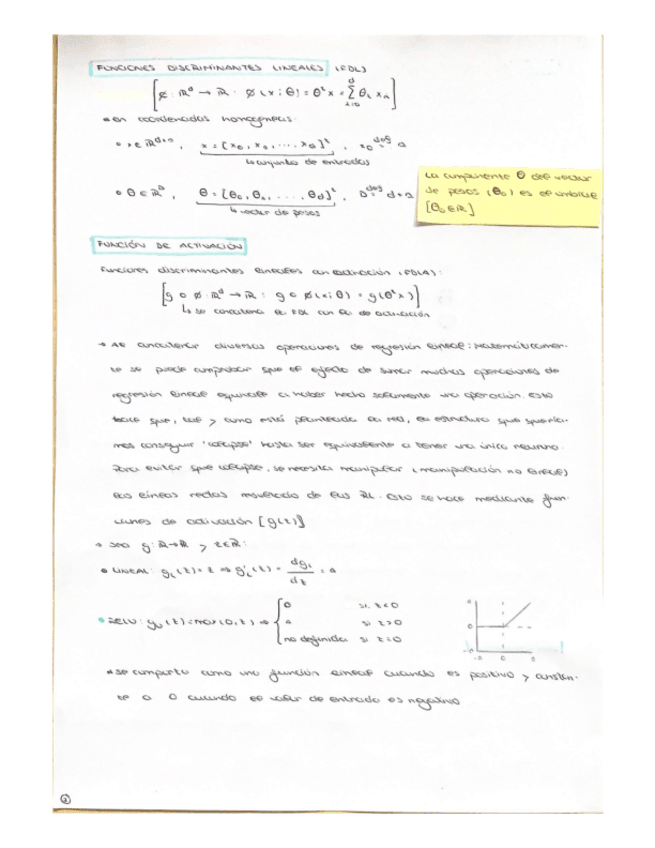 FUNCIONES DISCRIMINANTES LINEALES (FDL)
[ø: ℝᵈ → ℝ : ø(x; θ) = θᵗx = Σ θᵢ xₙ]
en coordenadas homogéneas:
x ∈ ℝᵈ⁺ⁿ, x = [x₀, x₁, ..., x_D]ᵗ, x₀ =
↳ conjunto de entradas
θ ∈ ℝᴰ, θ = [θ₀, θ₁, ..., θd]ᵗ, D = d+1
↳ vector de pesos
La componente 0 del vector
de pesos (θ₀) es el umbral
[θ₀ ∈ ℝ]
FUNCIÓN DE ACTIVACIÓN
Funciones discriminantes lineales con activación (FDLA):
[g o ø: ℝᵈ → ℝ : g o ø(x; θ) = g(θᵗx)]
↳ se concatena la FDL con la de activación
→ Al concatenar diversas operaciones de regresión lineal: Matemáticamen-
te se puede comprobar que el efecto de sumar muchas operaciones de
regresión lineal equivale a haber hecho solamente una operación. Esto
hace que, tal y como está planteada la red, la estructura que quería-
mos conseguir 'colapse' hasta ser equivalente a tener una única neurona.
Para evitar que colapse, se necesita manipular (manipulación no lineal)
las líneas rectas resultado de las RL. Esto se hace mediante fun-
ciones de activación [g(z)]
→ sea g: ℝ→ℝ y z∈ℝ:
LINEAL: g_L(z) = z ⇒ g'_L(z) = dg_L/dz = 1
RELU: g_U(z) = max(0, z) ⇒ { 0 si z<0
1 si z>0
no definida si z=0
se comporta como una función lineal cuando es positivo y constan-
te a 0 cuando el valor de entrada es negativo
②